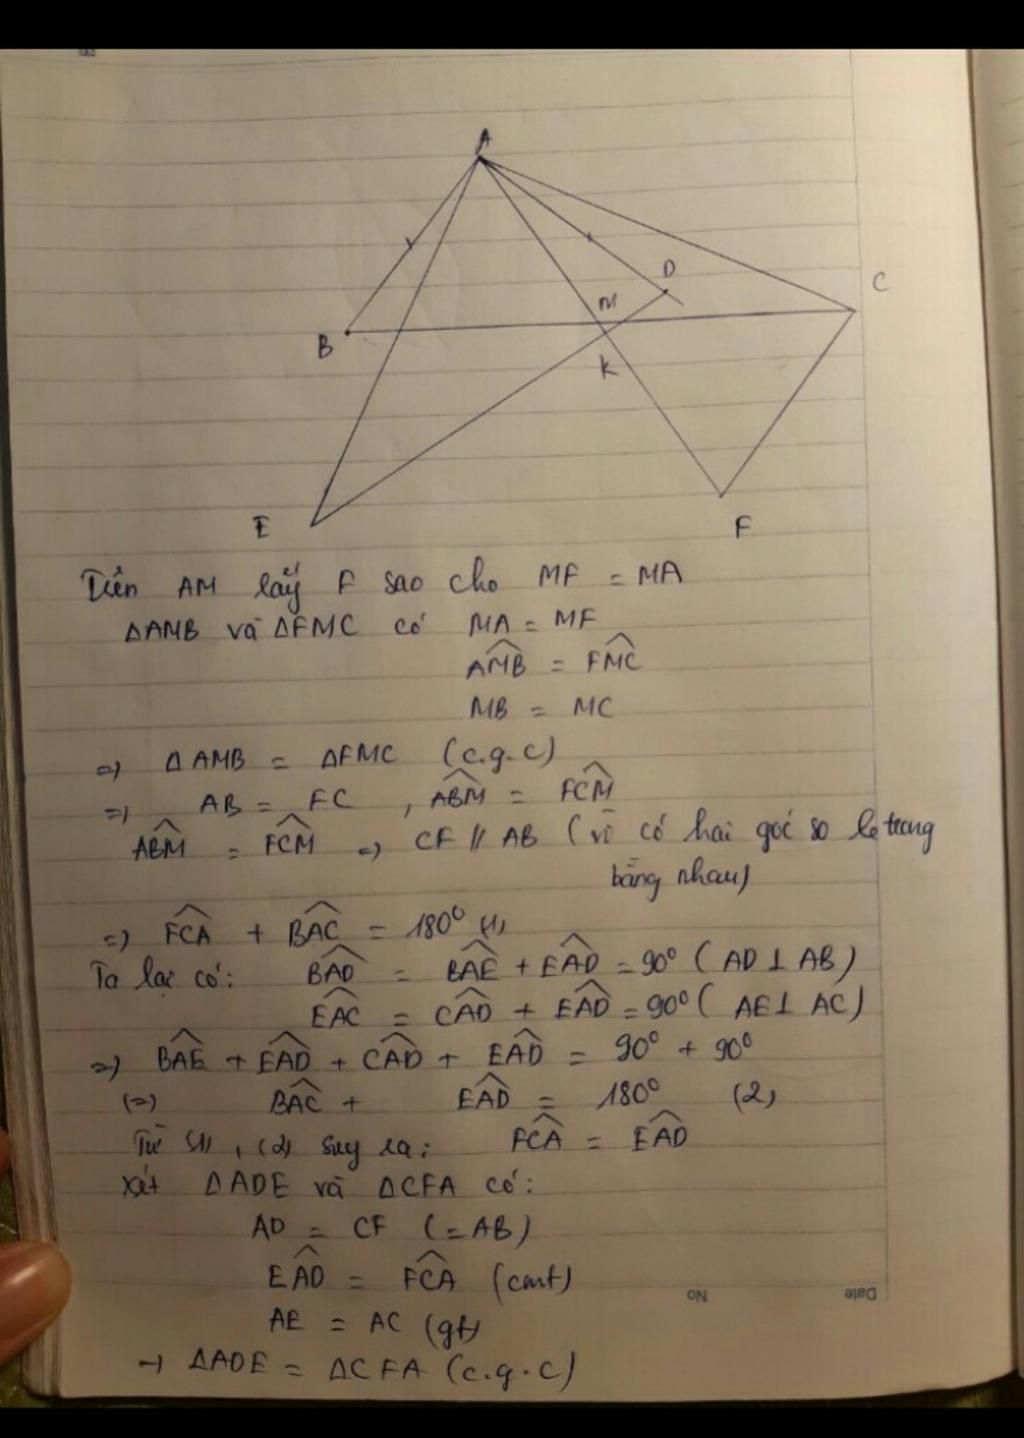 A
D
C
M
B
K
E
F
Trên AM lấy F sao cho MF = MA
ΔAMB và ΔFMC có MA = MF
\widehat{AMB} = \widehat{FMC}
MB = MC
=> ΔAMB = ΔFMC (c.g.c)
=> AB = FC , \widehat{ABM} = \widehat{FCM}
\widehat{ABM} = \widehat{FCM} => CF // AB (vì có hai góc so le trong
bằng nhau)
=> \widehat{FCA} + \widehat{BAC} = 180° (1)
Ta lại có: \widehat{BAD} = \widehat{BAE} + \widehat{EAD} = 90° (AD ⊥ AB)
\widehat{EAC} = \widehat{CAD} + \widehat{EAD} = 90° (AE ⊥ AC)
=> \widehat{BAE} + \widehat{EAD} + \widehat{CAD} + \widehat{EAD} = 90° + 90°
(=) \widehat{BAC} + \widehat{EAD} = 180° (2)
Từ (1), (2) suy ra: \widehat{FCA} = \widehat{EAD}
Xét ΔADE và ΔCFA có:
AD = CF (=AB)
\widehat{EAD} = \widehat{FCA} (cmt)
AE = AC (gt)
→ ΔADE = ΔCFA (c.g.c)
No Date